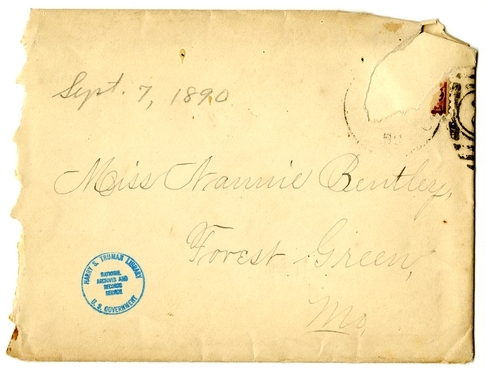 Sept. 7, 1890
Miss Nannie Bentley,
Forest Green,
Mo.
HARRY S. TRUMAN LIBRARY
NATIONAL
ARCHIVES AND
RECORDS
SERVICE
U. S. GOVERNMENT